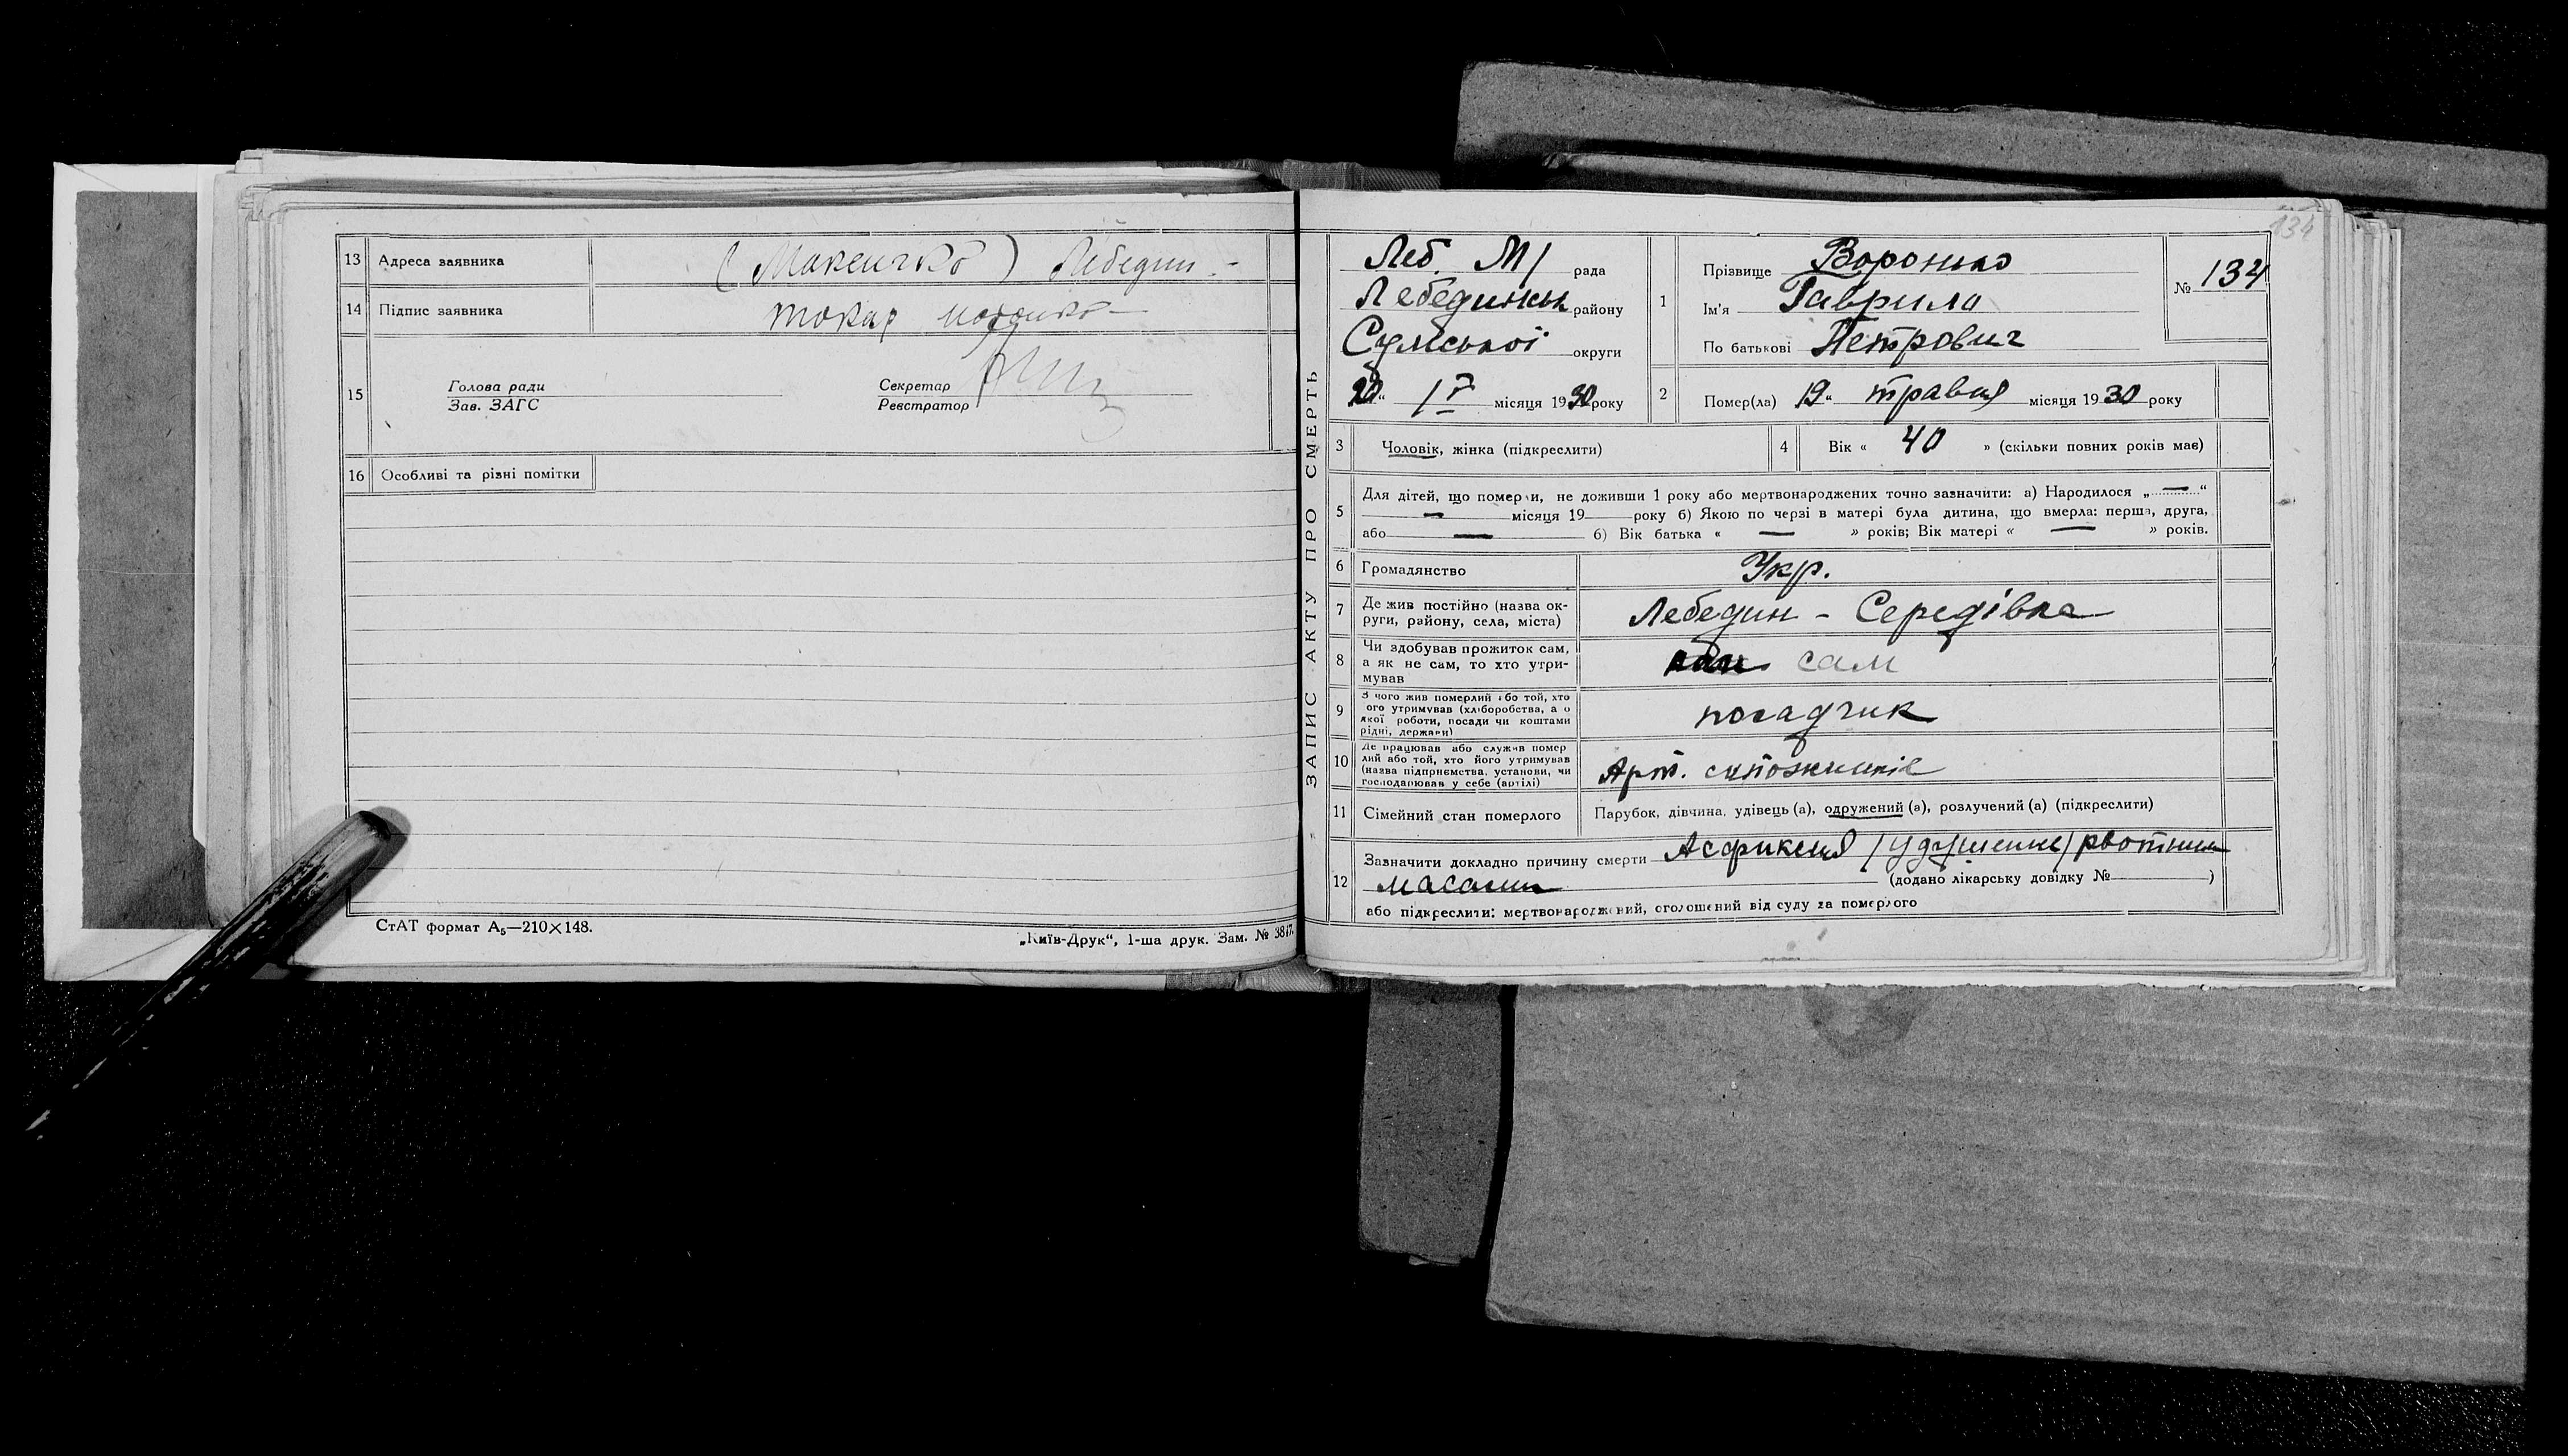 13 Адреса заявника ( ) Лебедин. -
14 Підпис заявника токар
15
Голова ради
Зав. ЗАГС
Секретар
Реєстратор
16 Особливі та різні помітки
СтАТ формат А₅—210×148.
„Київ-Друк“, 1-ша друк. Зам. № 3847.
ЗАПИС АКТУ ПРО СМЕРТЬ
134
Леб. М/ рада
Лебединськ району
Сумської округи
20 “ місяця 1930 року
1
Прізвище Воронько
Ім'я Гаврило
По батькові Петрович
№ 134
2 Помер(ла) 19 “ травня місяця 1930 року
3 Чоловік, жінка (підкреслити)
4 Вік « 40 » (скільки повних років має)
5 Для дітей, що померли, не доживши 1 року або мертвонароджених точно зазначити: а) Народилося „ — “
— місяця 19 року б) Якою по черзі в матері була дитина, що вмерла: перша, друга,
або — б) Вік батька « — » років; Вік матері « — » років.
6 Громадянство Укр.
7 Де жив постійно (назва ок-
руги, району, села, міста)
Лебедин - Середівка
8 Чи здобував прожиток сам,
а як не сам, то хто утри-
мував
сам
9 З чого жив померлий або той, хто
його утримував (хліборобства, або
якої роботи, посади чи коштами
рідні, держави)
посадчик
10 Де працював або служив помер
лий або той, хто його утримував
(назва підприємства, установи, чи
господарював у себе (артілі)
Арт.
11 Сімейний стан померлого Парубок, дівчина, удівець (а), одружений (а), розлучений (а) (підкреслити)
12 Зазначити докладно причину смерти Асфиксия /удушение/ рвотными
масами (додано лікарську довідку № )
або підкреслити: мертвонароджений, оголошений від суду за померлого